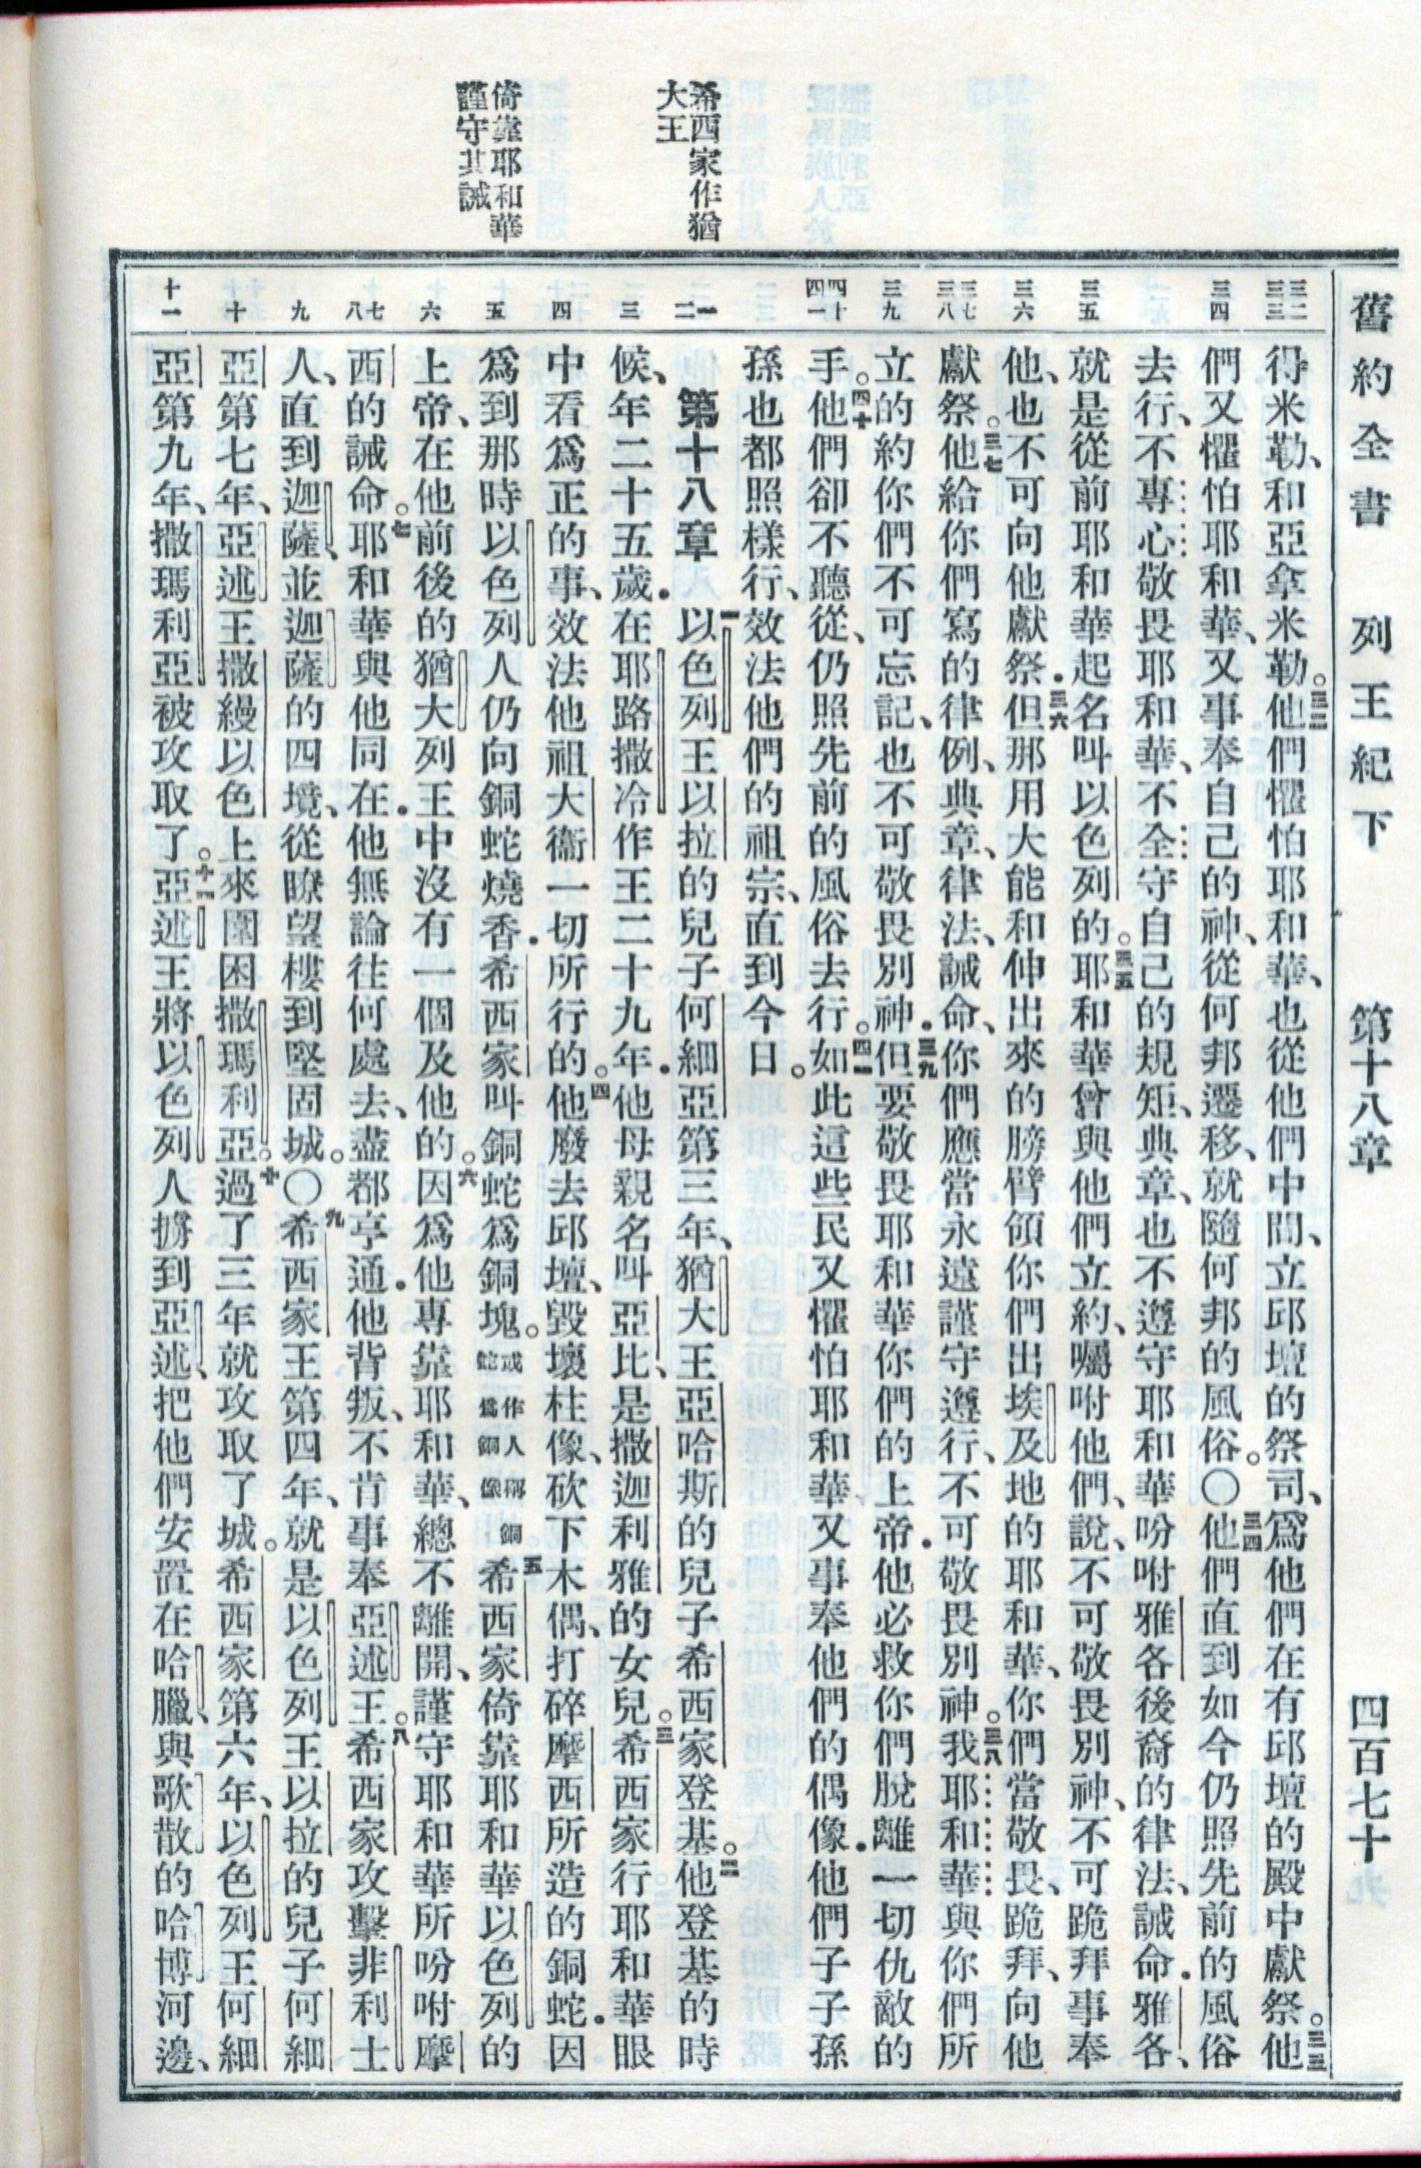 舊約全書　列王紀下　第十八章　四百七十
希西家作猶
大王
倚靠耶和華
謹守其誡
三二 三三
三四
三五
三六
三七 三八
三九
四十 四一
一 二
三
四
五
六
七 八
九
十
十一
得米勒、和亞拿米勒。三二他們懼怕耶和華、也從他們中間、立邱壇的祭司、爲他們在有邱壇的殿中獻祭。三三他
們又懼怕耶和華、又事奉自己的神、從何邦遷移、就隨何邦的風俗。〇三四他們直到如今仍照先前的風俗
去行、不專心敬畏耶和華、不全守自己的規矩、典章、也不遵守耶和華吩咐雅各後裔的律法、誡命．雅各、
就是從前耶和華起名叫以色列的。三五耶和華曾與他們立約、囑咐他們、說、不可敬畏別神、不可跪拜事奉
他、也不可向他獻祭．三六但那用大能和伸出來的膀臂領你們出埃及地的耶和華、你們當敬畏、跪拜、向他
獻祭。三七他給你們寫的律例、典章、律法、誡命、你們應當永遠謹守遵行、不可敬畏別神。三八我耶和華與你們所
立的約你們不可忘記、也不可敬畏別神．三九但要敬畏耶和華你們的上帝．他必救你們脫離一切仇敵的
手。四十他們卻不聽從、仍照先前的風俗去行。四一如此這些民又懼怕耶和華又事奉他們的偶像．他們子子孫
孫也都照樣行、效法他們的祖宗、直到今日。
第十八章　一以色列王以拉的兒子何細亞第三年、猶大王亞哈斯的兒子希西家登基。二他登基的時
候、年二十五歲．在耶路撒冷作王二十九年．他母親名叫亞比、是撒迦利雅的女兒。三希西家行耶和華眼
中看爲正的事、效法他祖大衞一切所行的。四他廢去邱壇、毀壞柱像、砍下木偶、打碎摩西所造的銅蛇．因
爲到那時以色列人仍向銅蛇燒香．希西家叫銅蛇爲銅塊。或作人稱銅蛇爲銅像五希西家倚靠耶和華以色列的
上帝、在他前後的猶大列王中沒有一個及他的。六因爲他專靠耶和華、總不離開、謹守耶和華所吩咐摩
西的誡命。七耶和華與他同在．他無論往何處去、盡都亨通．他背叛、不肯事奉亞述王。八希西家攻擊非利士
人、直到迦薩、並迦薩的四境、從瞭望樓到堅固城。〇九希西家王第四年、就是以色列王以拉的兒子何細
亞第七年、亞述王撒縵以色上來圍困撒瑪利亞。十過了三年就攻取了城。希西家第六年、以色列王何細
亞第九年、撒瑪利亞被攻取了。十一亞述王將以色列人擄到亞述、把他們安置在哈臘、與歌散的哈博河邊、